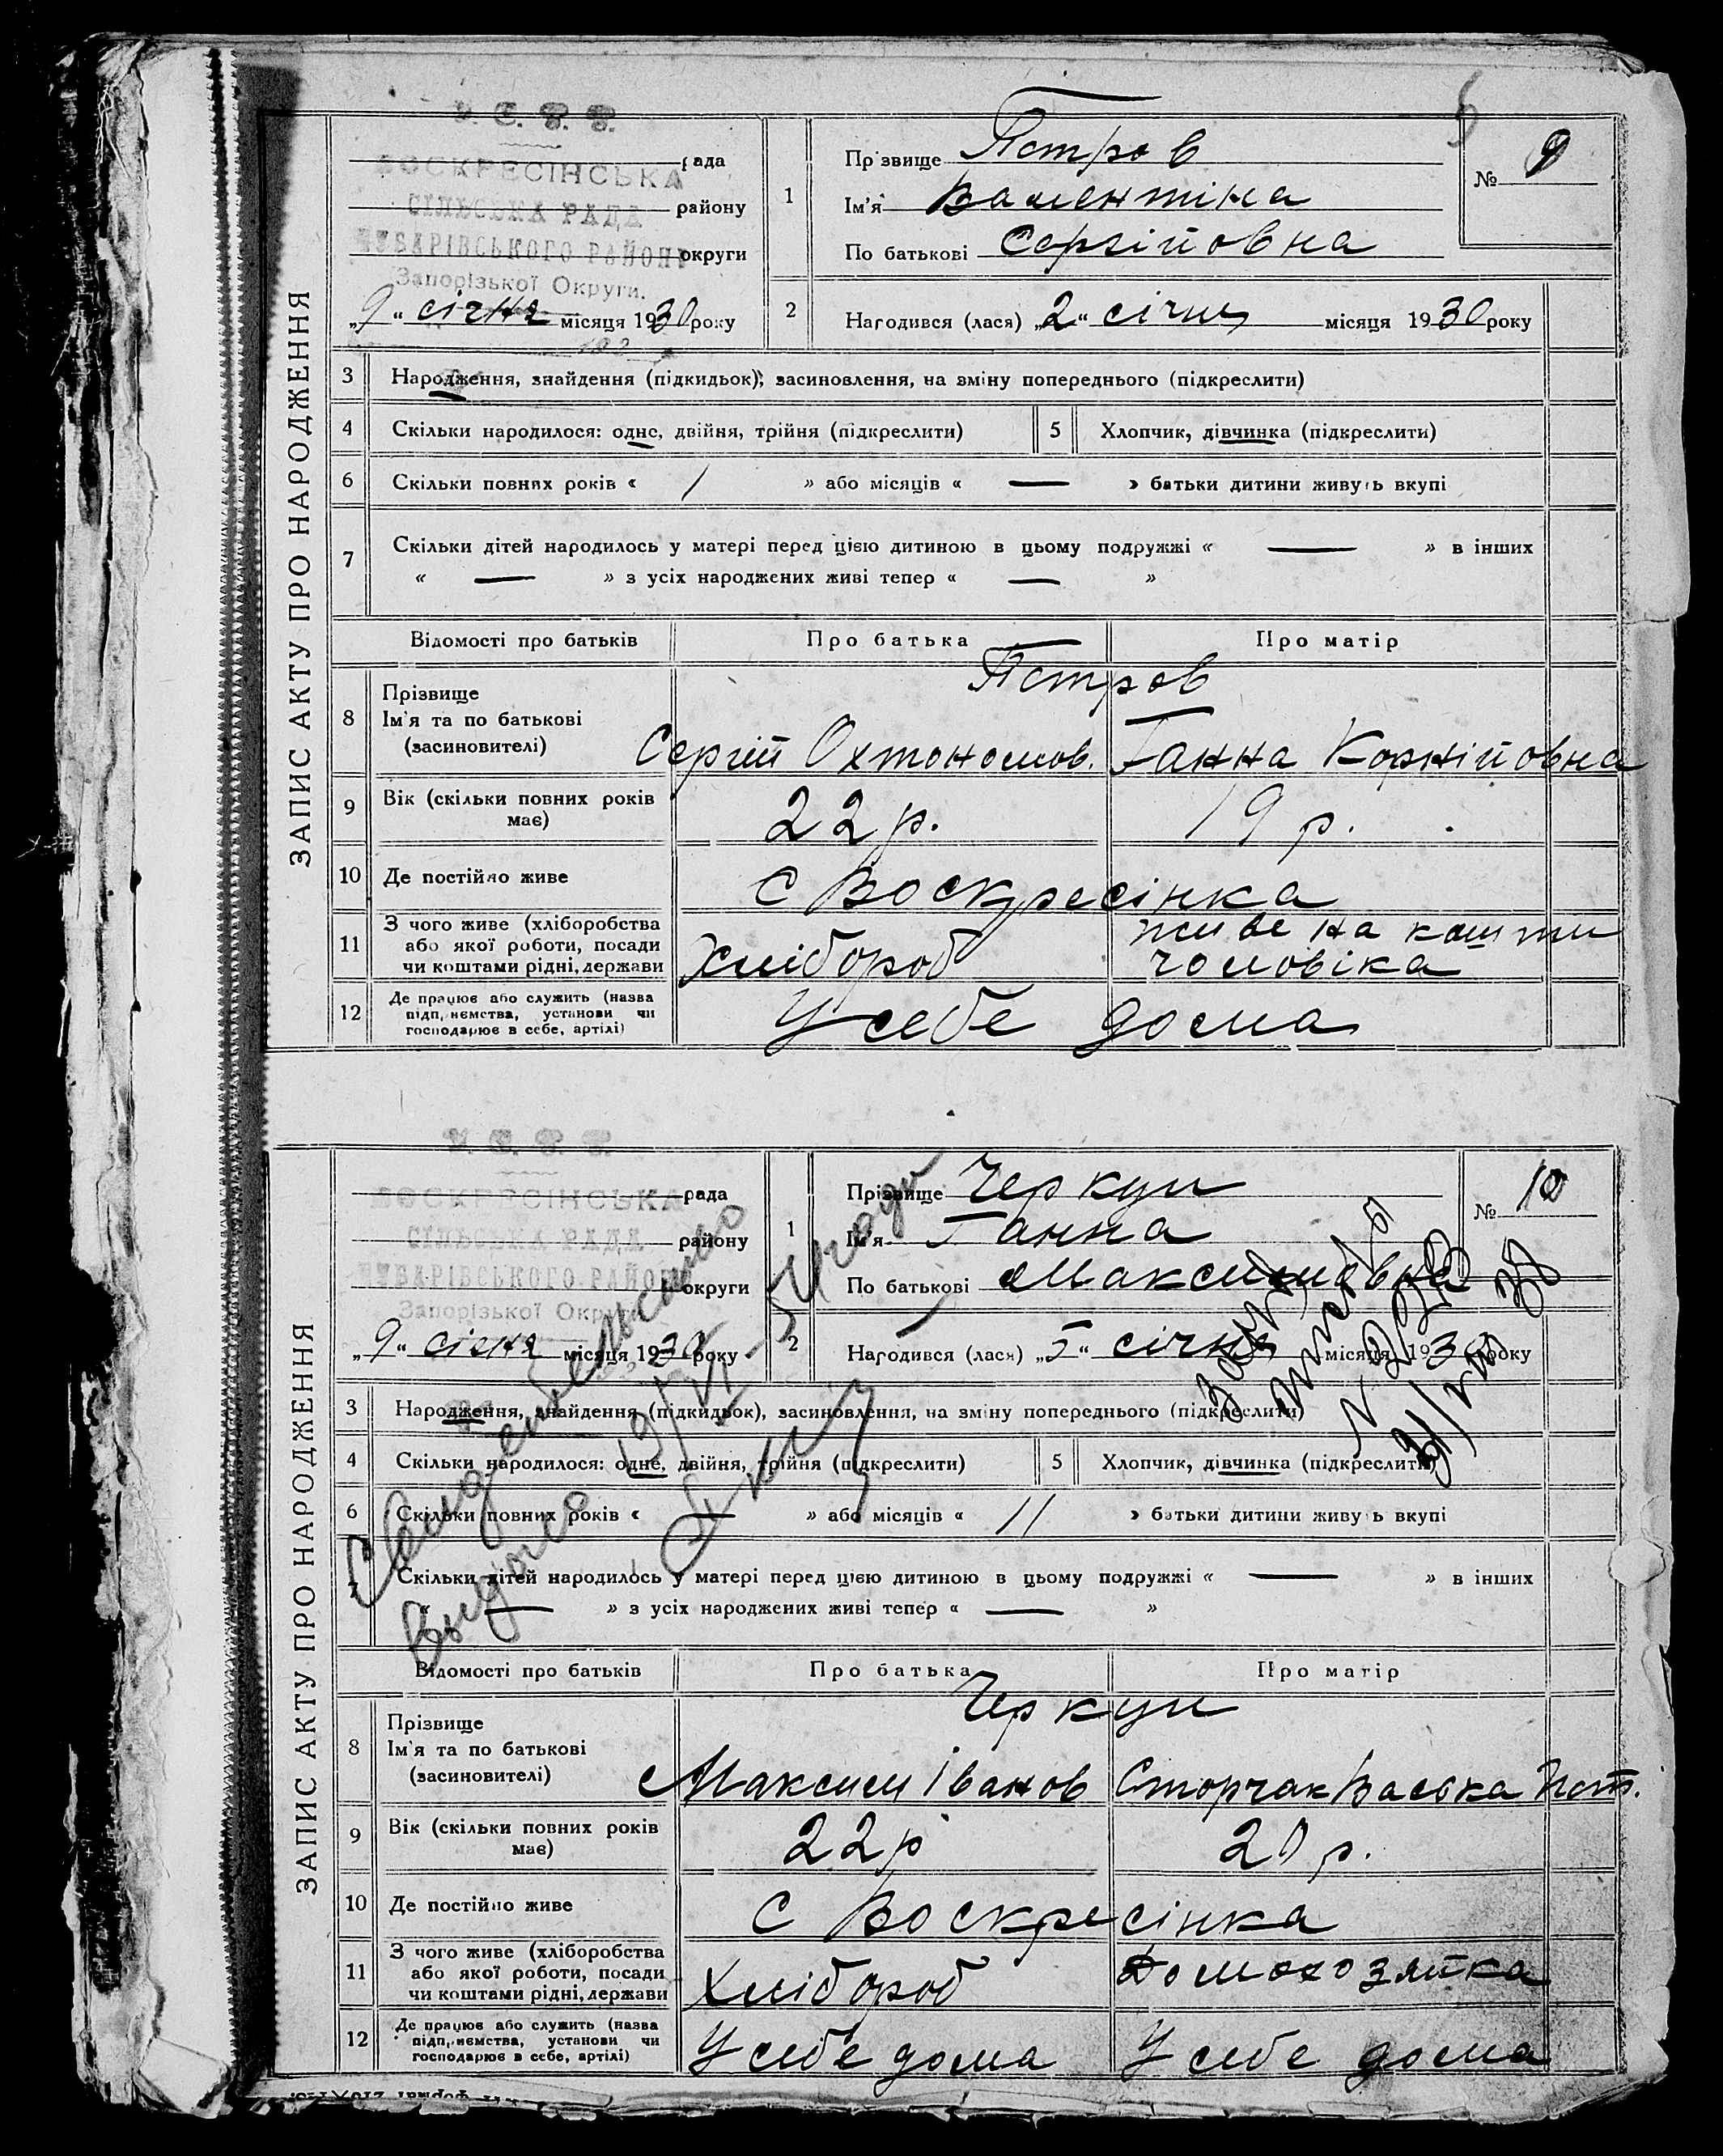 6
ЗАПИС АКТУ ПРО НАРОДЖЕННЯ
У. С. Р. Р.
ВОСКРЕСІНСЬКА рада
СІЛЬСЬКА РАДА району
ЧУБАРІВСЬКОГО РАЙОНУ округи
Запорізької Округи.
„9“ січня місяця 1930 року
1
Прізвище Петров
Ім'я Валентіна
По батькові Сергійовна
№ 9
2 Народився (лася) „2“ січня місяця 1930 року
3 Народження, знайдення (підкидьок), засиновлення, на зміну попереднього (підкреслити)
4 Скільки народилося: одне, двійня, трійня (підкреслити) 5 Хлопчик, дівчинка (підкреслити)
6 Скільки повних років « 1 » або місяців « — » батьки дитини живуть вкупі
7 Скільки дітей народилось у матері перед цією дитиною в цьому подружжі « — » в інших
« — » з усіх народжених живі тепер « — »
Відомості про батьків Про батька Про матір
8 Прізвище Петров
Ім'я та по батькові
(засиновителі) Сергій Охтономов. Ганна Корнійовна
9 Вік (скільки повних років має) 22 р. 19 р.
10 Де постійно живе С Воскресінка
11 З чого живе (хліборобства
або якої роботи, посади
чи коштами рідні, держави
Хлібороб
живе на кошти
чоловіка
12 Де працює або служить (назва
підприємства, установи чи
господарює в себе, артілі)
У себе дома
ЗАПИС АКТУ ПРО НАРОДЖЕННЯ
У. С. Р. Р.
ВОСКРЕСІНСЬКА рада
СІЛЬСЬКА РАДА району
ЧУБАРІВСЬКОГО РАЙОНУ округи
Запорізької Округи.
„9“ січня місяця 1930 року
1
Прізвище Черкун
Ім'я Ганна
По батькові Максимовна
№ 10
2 Народився (лася) „5“ січня місяця 1930 року
3 Народження, знайдення (підкидьок), засиновлення, на зміну попереднього (підкреслити)
4 Скільки народилося: одне, двійня, трійня (підкреслити) 5 Хлопчик, дівчинка (підкреслити)
6 Скільки повних років « — » або місяців « 11 » батьки дитини живуть вкупі
7 Скільки дітей народилось у матері перед цією дитиною в цьому подружжі « — » в інших
« — » з усіх народжених живі тепер « — »
Свидетельство
выдано
Відомості про батьків Про батька Про матір
8 Прізвище Черкун
Ім'я та по батькові
(засиновителі) Максим Іванов Сторчак Васька Пет.
9 Вік (скільки повних років має) 22 р 20 р.
10 Де постійно живе С Воскресінка
11 З чого живе (хліборобства
або якої роботи, посади
чи коштами рідні, держави
Хлібороб Домохозяйка
12 Де працює або служить (назва
підприємства, установи чи
господарює в себе, артілі)
У себе дома У себе дома